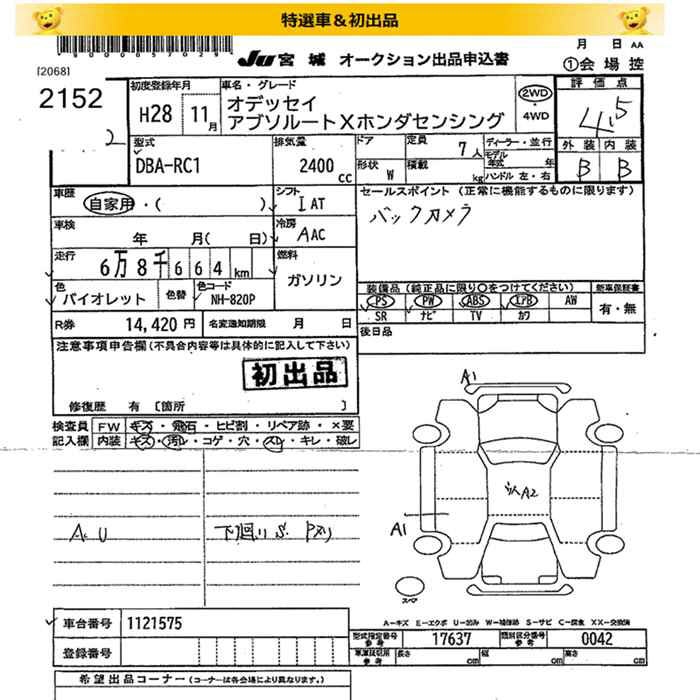 特選車&初出品
00005702
JU 宮城 オークション出品申込書
月 日 AA
[2068]
①会場控
2152
初度登録年月
H28 11月
車名・グレード
オデッセイ
アブソルートXホンダセンシング
2WD
・
4WD
評価点
4.5
外装 内装
B B
2
型式
DBA-RC1
排気量
2400 cc
ドア
定員
7人
ディーラー・並行
モデル年式 年
形状 W
積載 kg
ハンドル 左・右
車歴
自家用・( )
シフト
I AT
セールスポイント (正常に機能するものに限ります)
バックカメラ
車検
年 月( 日)
冷房
A AC
走行
6万8千664km
燃料
ガソリン
色
バイオレット
色替
色コード
NH-820P
装備品 (純正品に限り○をつけてください)
新車保証書
PS PW ABS エアB AW
SR ナビ TV カワ
有・無
R券
14,420円
名変通知期限 月 日
後日品
注意事項申告欄 (不具合内容等は具体的に記入して下さい)
初出品
修復歴 有 [箇所 ]
検査員
記入欄
FW キズ・飛石・ヒビ割・リペア跡・×要
内装 キズ・汚れ・コゲ・穴・スレ・キレ・破レ
A1
A2
A1
A. U
下廻り S.
スペア
A-キズ E-エクボ U-凹み W-補修跡 S-サビ C-腐食 XX-交換済
車台番号
1121575
登録番号
型式指定番号 参考
17637
類別区分番号 参考
0042
車庫証明用 参考
長さ cm
幅 cm
高さ cm
希望出品コーナー (コーナーは各会場により異なります)